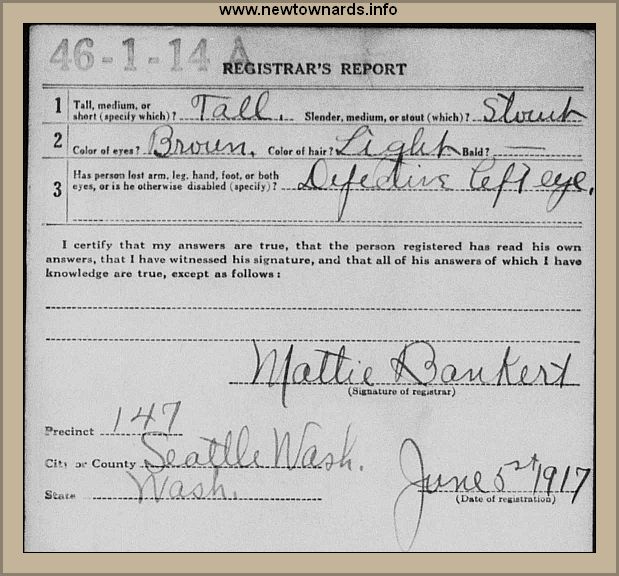 www.newtownards.info
46-1-14 A
REGISTRAR'S REPORT
1 Tall, medium, or short (specify which)? Tall. Slender, medium, or stout (which)? Stout
2 Color of eyes? Brown. Color of hair? Light Bald? —
3 Has person lost arm, leg, hand, foot, or both eyes, or is he otherwise disabled (specify)? Defective left eye.
I certify that my answers are true, that the person registered has read his own
answers, that I have witnessed his signature, and that all of his answers of which I have
knowledge are true, except as follows:
Mattie Bankert
(Signature of registrar)
Precinct 147
City or County Seattle Wash.
State Wash.
June 5st 1917
(Date of registration)